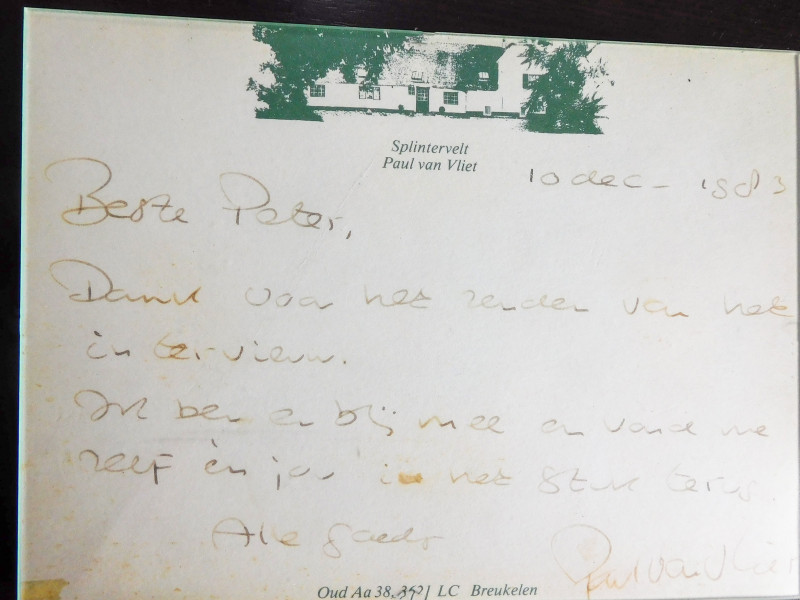 Splintervelt
Paul van Vliet
10 dec - 1983
Beste Peter,
Dank voor het zenden van het
interview.
Ik ben er blij mee en vond me
zelf èn jou in het stuk terug.
Alle goeds
Paul van Vliet
Oud Aa 38, 3621 LC Breukelen